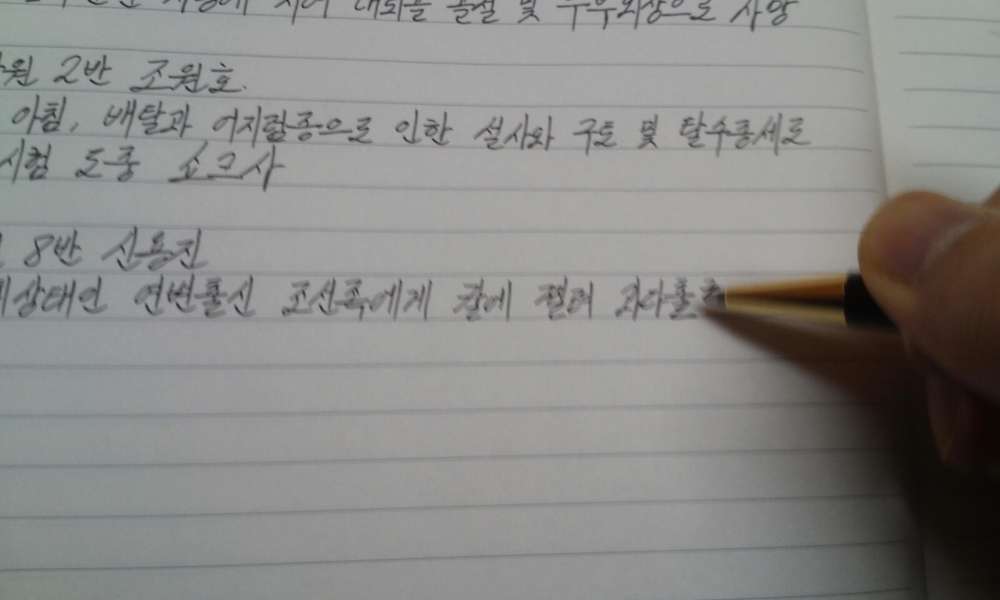 치어 대퇴골 골절 및 두부외상으로 사망
2반 조원호.
아침, 배탈과 어지럼증으로 인한 설사와 구토 및 탈수증세로
시험 도중 쇼크사
8반 신용진
연변출신 조선족에게 칼에 찔려 과다출